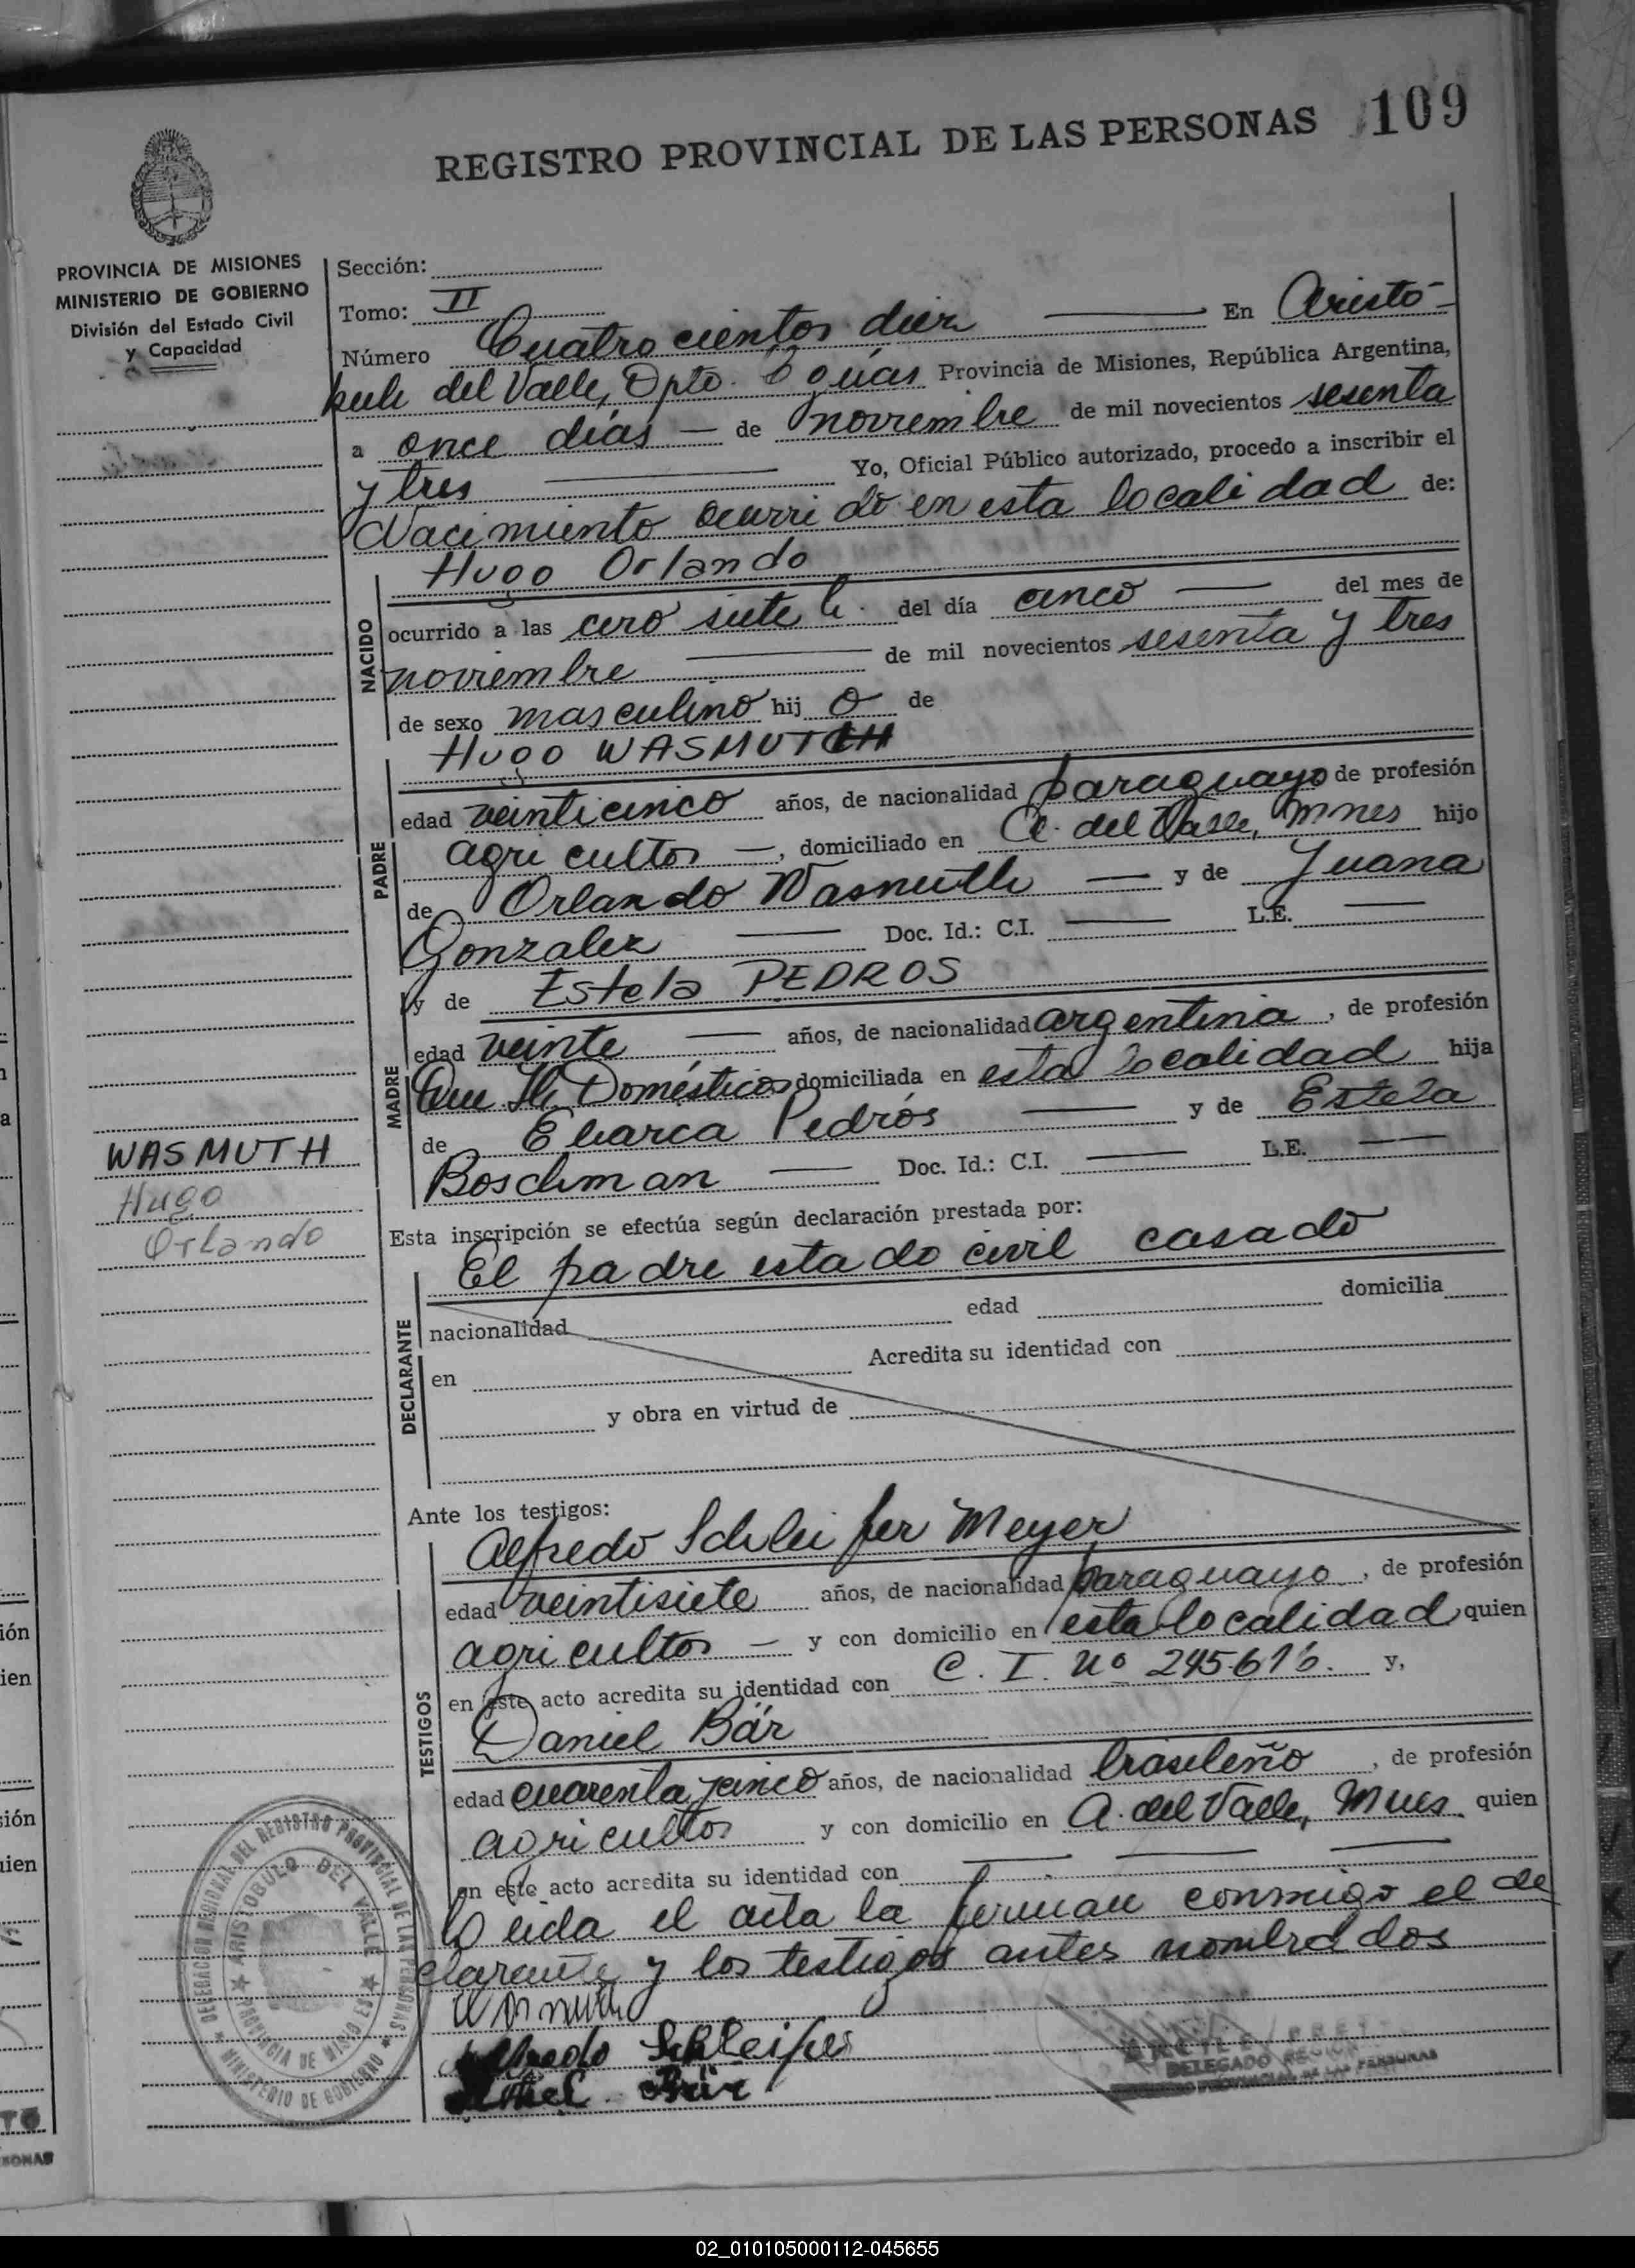 REGISTRO PROVINCIAL DE LAS PERSONAS 109
PROVINCIA DE MISIONES
MINISTERIO DE GOBIERNO
División del Estado Civil
y Capacidad
Sección:
Tomo: II
Número Cuatrocientos diez En Aristó-
bulo del Valle, Dpto. Cguás Provincia de Misiones, República Argentina,
a once días de noviembre de mil novecientos sesenta
y tres Yo, Oficial Público autorizado, procedo a inscribir el
Nacimiento ocurrido en esta localidad de:
NACIDO
Hugo Orlando
ocurrido a las cero siete h. del día cinco del mes de
noviembre de mil novecientos sesenta y tres
de sexo masculino hij o de
PADRE
Hugo WASMUTH
edad veinticinco años, de nacionalidad paraguayo de profesión
agricultor, domiciliado en A. del Valle, Mnes hijo
de Orlando Wasmuth y de Juana
Gonzalez Doc. Id.: C.I. L.E.
MADRE
y de Estela PEDROS
edad veinte años, de nacionalidad argentina, de profesión
Domésticos domiciliada en esta localidad hija
de Pedrós y de Estela
Boschman Doc. Id.: C.I. L.E.
WASMUTH
Hugo
Orlando
Esta inscripción se efectúa según declaración prestada por:
DECLARANTE
El padre estado civil casado
nacionalidad edad domicilia
en Acredita su identidad con
y obra en virtud de
Ante los testigos:
TESTIGOS
Alfredo Schleifer Meyer
edad veintisiete años, de nacionalidad paraguayo, de profesión
agricultor y con domicilio en esta localidad quien
en este acto acredita su identidad con C. I. Nº y,
Daniel Bär
edad cuarenta y cinco años, de nacionalidad brasileño, de profesión
agricultor y con domicilio en A. del Valle, Mnes. quien
en este acto acredita su identidad con
Leida el acta la firman conmigo el de
clarante y los testigos antes nombrados
Wasmuth
Alfredo Schleifer
Daniel Bär
DELEGACION REGIONAL DEL REGISTRO PROVINCIAL DE LAS PERSONAS
MINISTERIO DE GOBIERNO
ARISTOBULO DEL VALLE
PROVINCIA DE MISIONES
DELEGADO REGIONAL
REGISTRO PROVINCIAL DE LAS PERSONAS
02_010105000112-045655